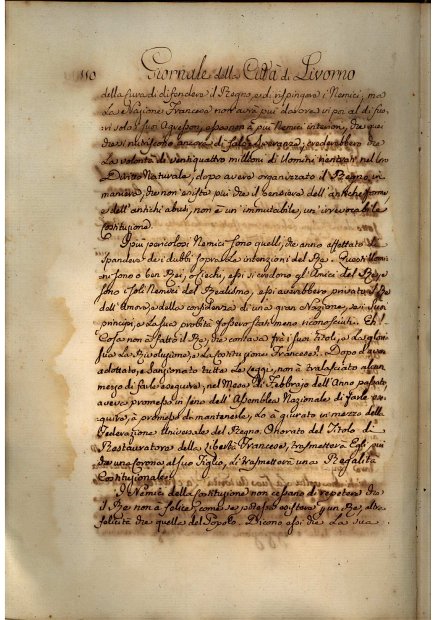 110 Giornale della Città di Livorno
della Cura di difendere il Regno, e di rispingere i Nemici; ma
La Nazione Francese non avrà più da vedere al di fuo-
ri solo i suoi Aggressori, e non à più Nemici interiori, che que
che si nutriscono ancora di false
La volontà di Ventiquattro millioni di Uomini nel loro
Diritto Naturale, dopo avere organizzato il Regno in
maniera, che non esista più che il pensiere dell'antiche forme,
e dell'antichi abusi, non è un'immutabile, un'irrevocabile
Costituzione.
I più pericolosi Nemici sono quelli, che anno affettato di
spandere de i dubbi sopra Le intenzioni del Re. Questi Uomi
ni sono o ben Rei, o ciechi, essi si credono gl'Amici del Re, e
sono i soli Nemici del Realismo, essi averebbero privato il Re
dell'Amore, e della confidenza di una gran Nazione, se i suoi
principj, e La sua probità fossero stati meno riconosciuti. Eh
Cosa non à fatto il Re, che conta a frà i suoi titoli, e La gloria
sua La Rivoluzione, e La Costituzione Francese. Dopo d'avere
adottato, e Sanzionato tutte Le Leggi, non à tralasciato alcun
mezzo di farle eseguire, nel Mese di Febbrajo dell'Anno passato,
aveva promesso in seno dell'Assemblea Nazionale di farle ese-
guire, à promesso di mantenerle, Lo à giurato in mezzo della
Federazione Universale del Regno. Onorato del Titolo di
Restauratore della Libertà Francese, trasmetterà Egli più
che una Corona al suo Figlio, Li trasmetterà una Realità
Costituzionale.
I Nemici della Costituzione non cessano di repetere che
il Re non è felice, come se potesse esistere p. un Re, altre
felicità che quella del Popolo. Dicono essi che La sua